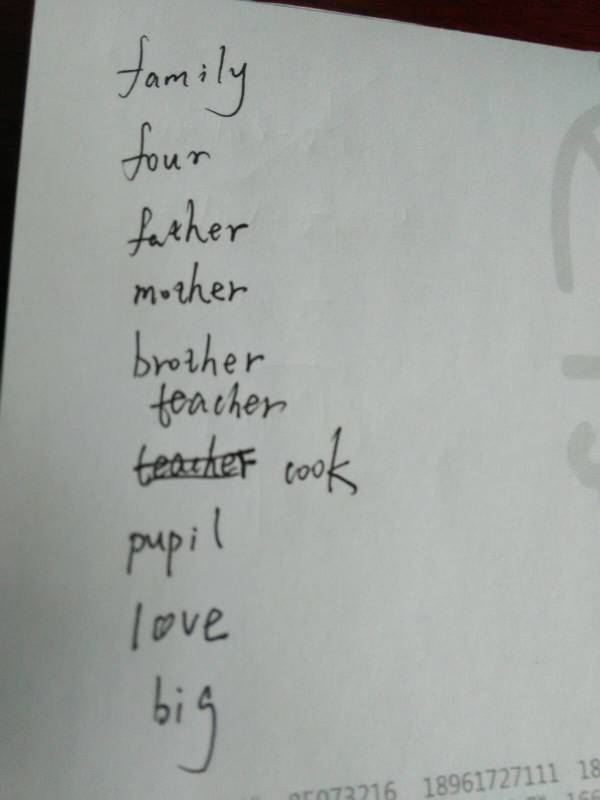 family
four
father
mother
brother
teacher
teacher cook
pupil
love
big
18961727111 18